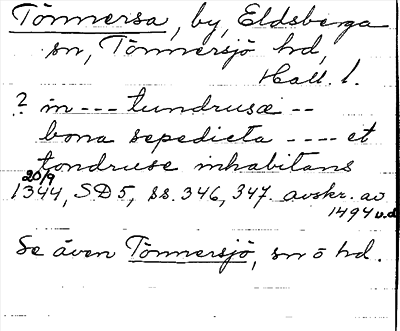 Tönnersa, by, Eldsberga
sn, Tönnersjö hd,
Hall. l.
? in --- tundrusæ --
bona sepedicta ---- et
tondruse inhabitans
20/9
1344, SD5, ss. 346, 347. avskr. av
1494 u.d.
Se även Tönnersjö, sn o hd.